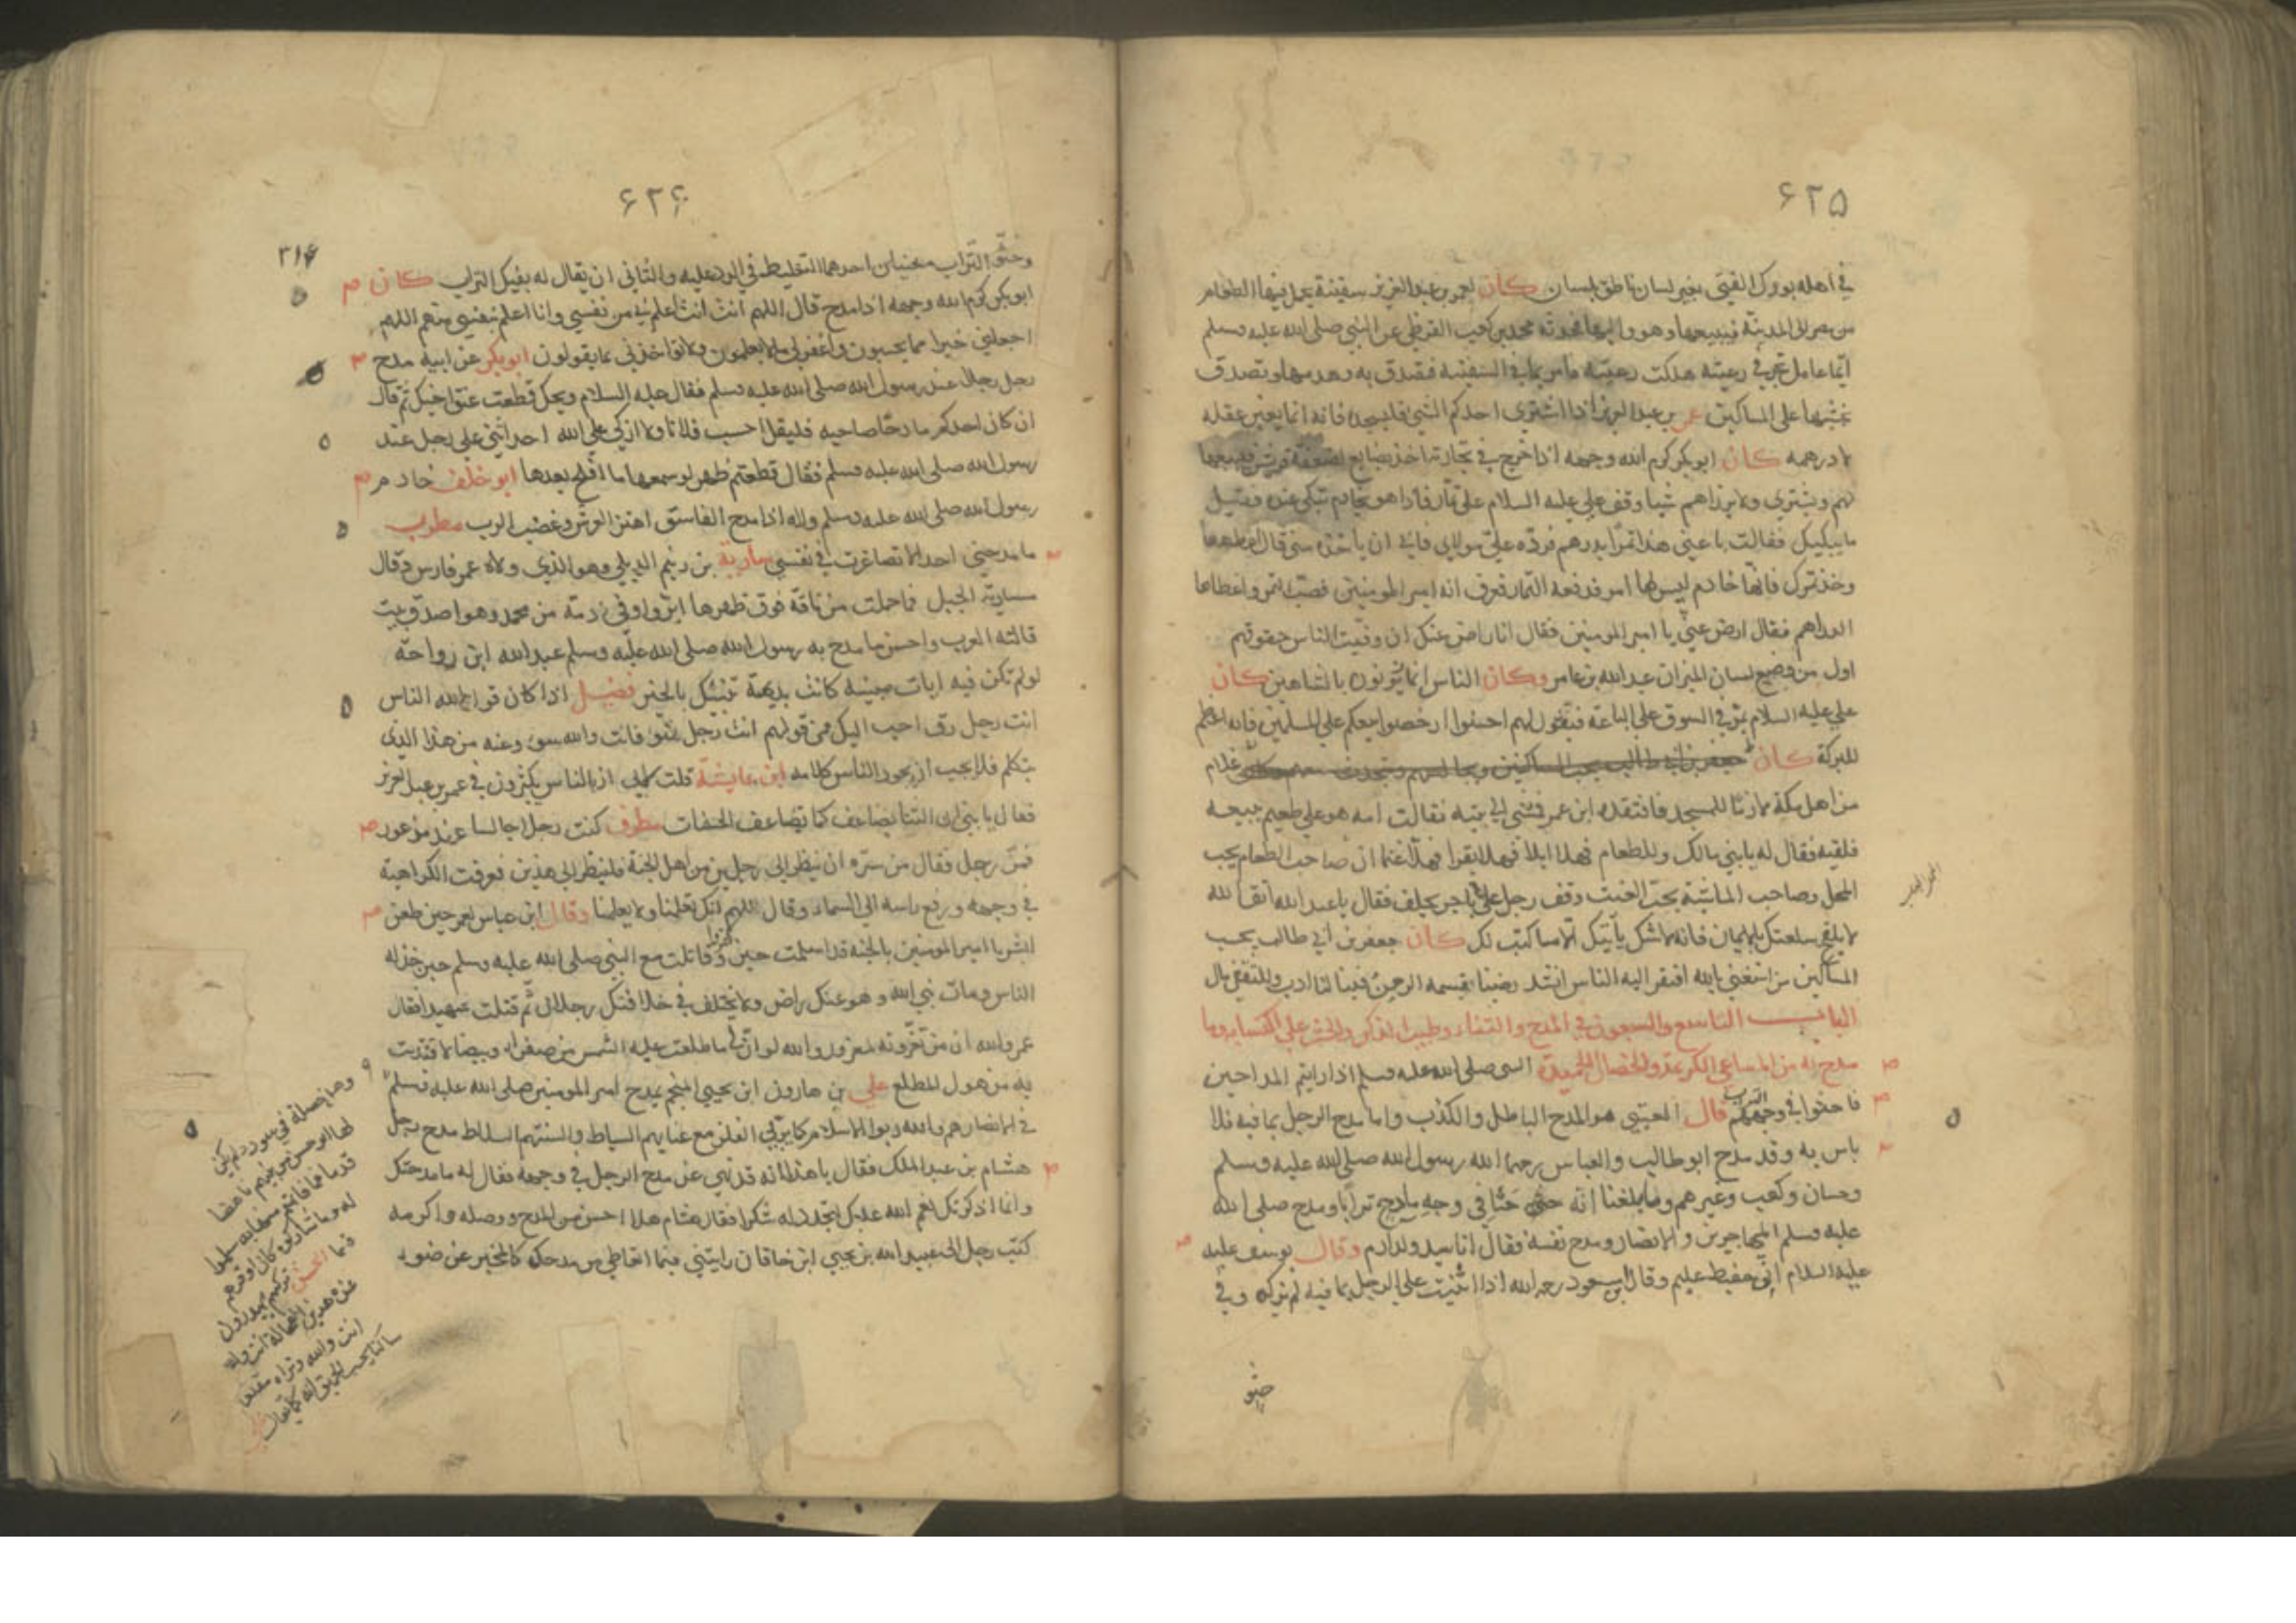 ٦٢٥
في اهله بورك الفتى بغير لسان ناطق بلسان كان لعمر بن عبد العزيز سفينة يحمل فيها الطعام
من مصر الى المدينة فيبيعها وهو واليها فحدثه محمد بن كعب القرظي عن النبي صلى الله عليه وسلم
ايما عامل تجر في رعيته هلكت رعيته فامر بما في السفينة فتصدق به وهدمها وتصدق
بخشبها على المساكين عمر بن عبد العزيز اذا اشترى احدكم الشي فليجد فانه انما يغبن عقله
لا درهمه كان ابو بكر كرم الله وجهه اذا خرج في تجارته اخذ بضايع لضعفة قريش فيبيعها
لهم ويشتري ولا يرزاهم شيا وقف علي عليه السلام على تمار فاذا هو بخادم تبكي عنده فقيل
ما يبكيك فقالت باعني هذا تمرا بدرهم فرده علي مولاي فابى ان ياخذه مني قال اعطها
وخذ تمرك فانها خادم ليس لها امر فدفعه التمار فعرف انه امير المومنين فصب التمر واعطاها
الدراهم فقال ارض عني يا امير المومنين فقال انا راض عنك ان وفيت الناس حقوقهم
اول من وضع لسان الميزان عبد الله بن عامر وكان الناس انما يزنون بالشاهين كان
علي عليه السلام يمر في السوق على الباعة فيقول لهم احسنوا ارخصوا بيعكم على المسلمين فانه اعظم
للبركة كان جعفر بن ابي طالب يحب المساكين ويجالسهم ويتحدث غلام
من اهل مكة ملازما للمسجد فافتقده ابن عمر فمشى الى بيته فقالت امه هو على طعيم يبيعه
فلقيه فقال له يا بني مالك وللطعام فهلا ابلا فهلا بقرا فهلا غنما ان صاحب الطعام يحب
المحل وصاحب الماشية يحب الغيث وقف رجل على تاجر يحلف فقال يا عبد الله اتق الله
لا يلقح سلعتك بالايمان فانه لا شك ياتيك الا ما كتب لك كان جعفر بن ابي طالب يحب
المساكين من استغنى بالله افتقر اليه الناس انشد رضينا بقسمة الرحمن فينا لنا ادب وللثقفي مال
الباب التاسع والسبعون في المدح والثناء وطيب الذكر والحث على اكتسابه وما
مدح به من المساعي الكريمة والخصال الحميدة النبي صلى الله عليه وسلم اذا رايتم المداحين
فاحثوا في وجوههم التراب قال العتبي هو المدح الباطل والكذب واما مدح الرجل بما فيه فلا
باس به وقد مدح ابو طالب والعباس رحمهما الله رسول الله صلى الله عليه وسلم
وحسان وكعب وغيرهم وما بلغنا انه حثى حثا في وجه مادح ترابا ومدح صلى الله
عليه وسلم المهاجرين والانصار ومدح نفسه فقال انا سيد ولد ادم وقال يوسف عليه
عليه السلام اني حفيظ عليم وقال ابن مسعود رحمه الله اذا اثنيت على الرجل بما فيه لم تزكه وفي
حثو
٦٢٦
٣١٤
وحثو التراب معنيان احدهما التغليظ في الرد عليه والثاني ان يقال له بفيك التراب كان
ابو بكر كرم الله وجهه اذا مدح قال اللهم انت انت اعلم بي من نفسي وانا اعلم بنفسي منهم اللهم
اجعلني خيرا مما يحسبون واغفر لي ما لا يعلمون ولا تؤاخذني بما يقولون ابو بكر عن ابيه مدح
رجل رجلا عند رسول الله صلى الله عليه وسلم فقال عليه السلام ويحك قطعت عنق اخيك ثم قال
ان كان احدكم مادحا صاحبه فليقل احسب فلانا ولا ازكي على الله احد اثني على رجل عند
رسول الله صلى الله عليه وسلم فقال قطعتم ظهره لو سمعها ما افلح بعدها ابو خلف خادم
رسول الله صلى الله عليه وسلم واله اذا مدح الفاسق اهتز العرش وغضب الرب مطرف
ما مدحني احد الا تصاغرت في نفسي سارية بن زنيم الديلي وهو الذي ولاه عمر فارس وقال
سارية الجبل فما حملت من ناقة فوق ظهرها ابر واوفى ذمة من محمد وهو اصدق بيت
قالته العرب واحسن ما مدح به رسول الله صلى الله عليه وسلم عبد الله ابن رواحة
لو لم تكن فيه ايات مبينة كانت بديهته تنبئك بالخبر فضيل اذا كان قول الناس
انت رجل رق احب اليك من قولهم انت رجل فانت والله سوء وعنه من هذا الذي
يتكلم فلا يحب ان يجود الناس كلامه ابن عايشة قلت لابي ان الناس يكثرون في عمر بن عبد العزيز
فقال يا بني ان الثنا يضاعف كما تضاعف الحسنات مطرف كنت رجلا جالسا عند مذعور
فمر رجل فقال من سره ان ينظر الى رجلين من اهل الجنة فلينظر الى هذين فعرفت الكراهية
في وجهه ورفع راسه الى السماء وقال اللهم انك تعلمنا ولا يعلمنا وقال ابن عباس لعمر حين طعن
ابشر يا امير المومنين بالجنة قد اسلمت حين كفروا وقاتلت مع النبي صلى الله عليه وسلم حين خذله
الناس ومات نبي الله وهو عنك راض ولم يختلف في خلافتك رجلان ثم قتلت شهيدا فقال
عمر والله ان من تغرونه لمغرور والله لو ان لي ما طلعت عليه الشمس من صفراء وبيضا لافتديت
به من هول المطلع علي بن هارون ابن يحيى المنجم يمدح امير المومنين صلى الله عليه وسلم
في الانصار هم والله ربوا الاسلام كما يربى الفلو مع غنايهم السباط والسنتهم السلاط مدح رجل
هشام بن عبد الملك فقال يا هذا انه قد نهي عن مدح الرجل في وجهه فقال له ما مدحتك
وانما اذكرتك نعم الله عليك لتجدد له شكرا فقال هشام هذا احسن من المدح ووصله واكرمه
كتب رجل الى عبيد الله بن يحيى ابن خاقان رايتني فيما اتعاطى من مدحك كالمخبر عن ضوء